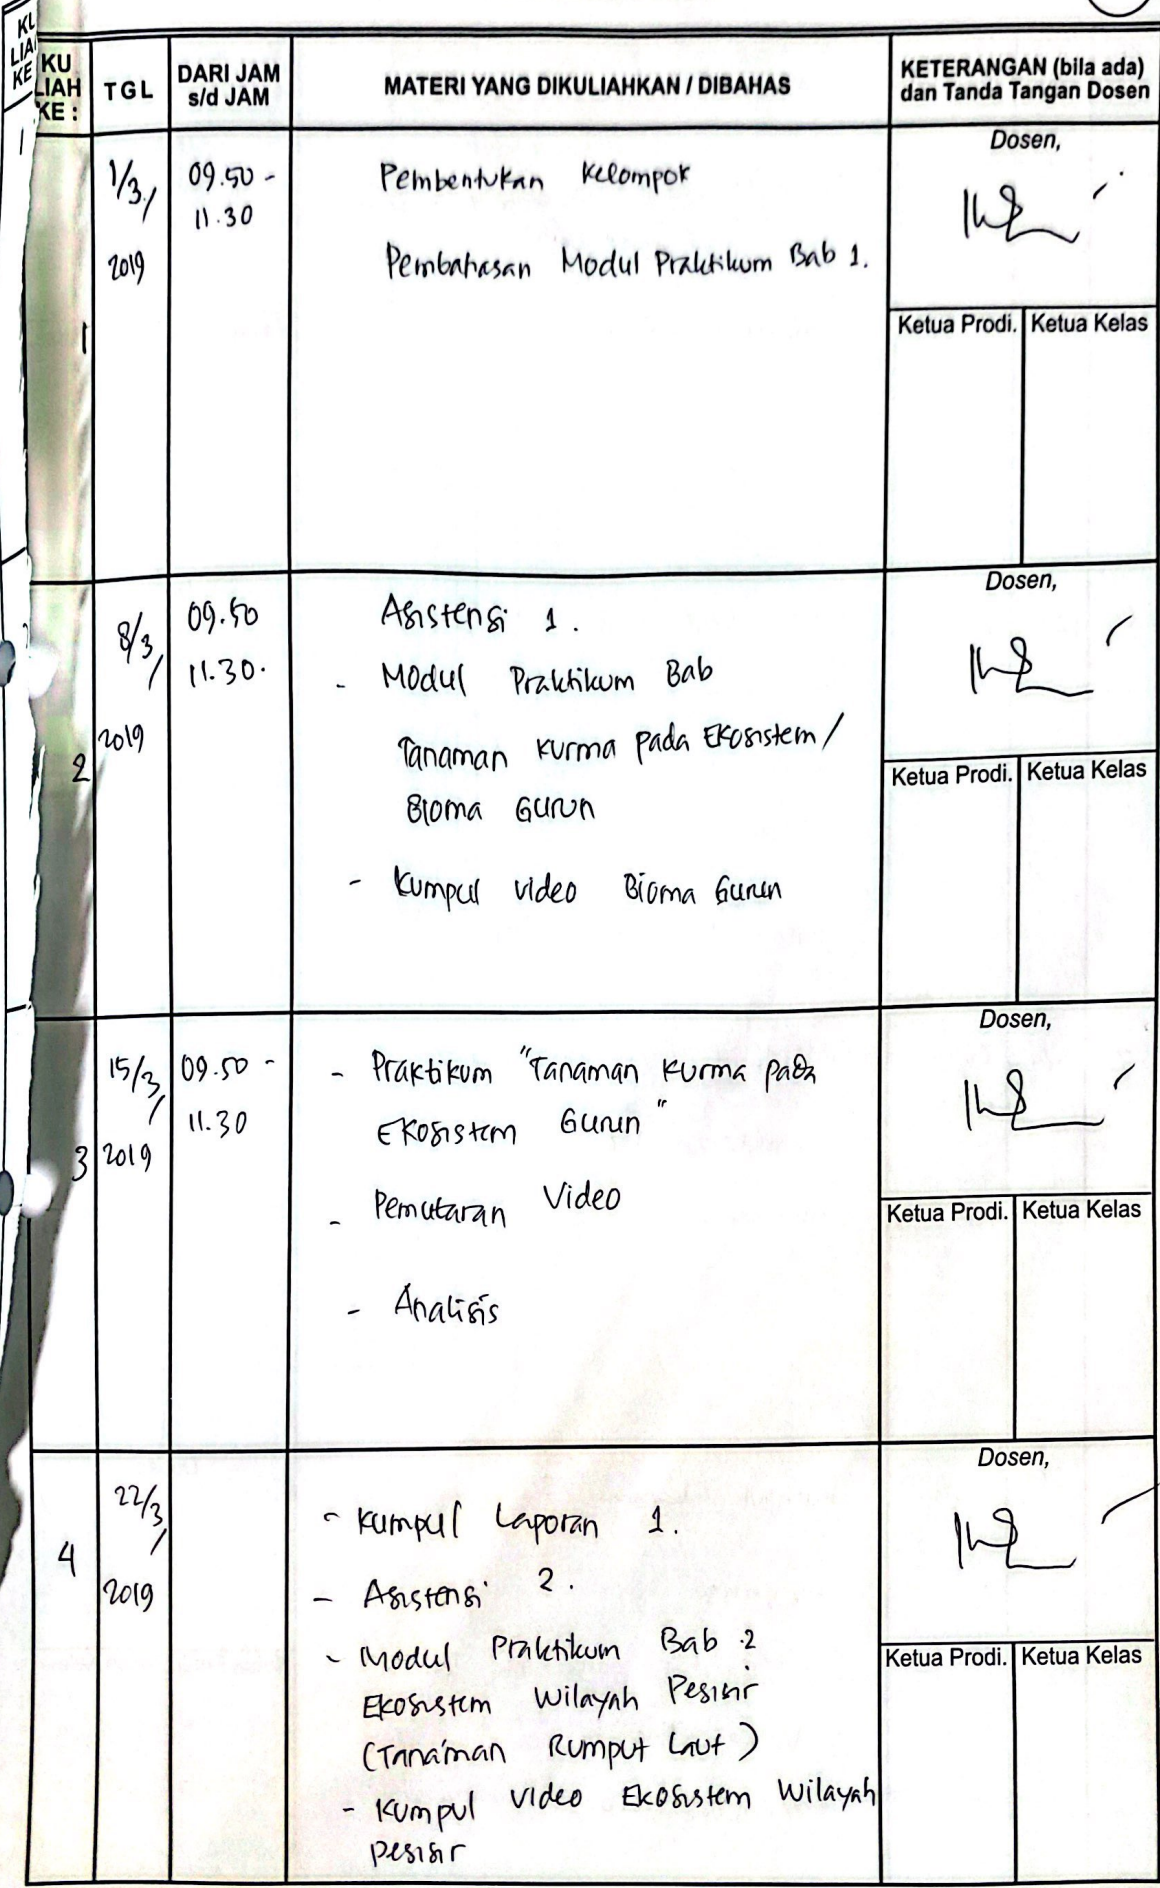 KU
LIAH
KE :
TGL
DARI JAM
s/d JAM
MATERI YANG DIKULIAHKAN / DIBAHAS
KETERANGAN (bila ada)
dan Tanda Tangan Dosen
1
1/3/
2019
09.50 -
11.30
Pembentukan Kelompok
Pembahasan Modul Praktikum Bab 1.
Dosen,
Ketua Prodi. Ketua Kelas
2
8/3/
2019
09.50
11.30.
Asistensi 1.
- Modul Praktikum Bab
Tanaman Kurma pada Ekosistem/
Bioma Gurun
- Kumpul video Bioma Gurun
Dosen,
Ketua Prodi. Ketua Kelas
3
15/3/
2019
09.50 -
11.30
- Praktikum "Tanaman Kurma pada
Ekosistem Gurun"
- Pemutaran Video
- Analisis
Dosen,
Ketua Prodi. Ketua Kelas
4
22/3/
2019
- Kumpul Laporan 1.
- Asistensi 2.
- Modul Praktikum Bab 2
Ekosistem Wilayah Pesisir
(Tanaman Rumput Laut)
- Kumpul video Ekosistem Wilayah
pesisir
Dosen,
Ketua Prodi. Ketua Kelas